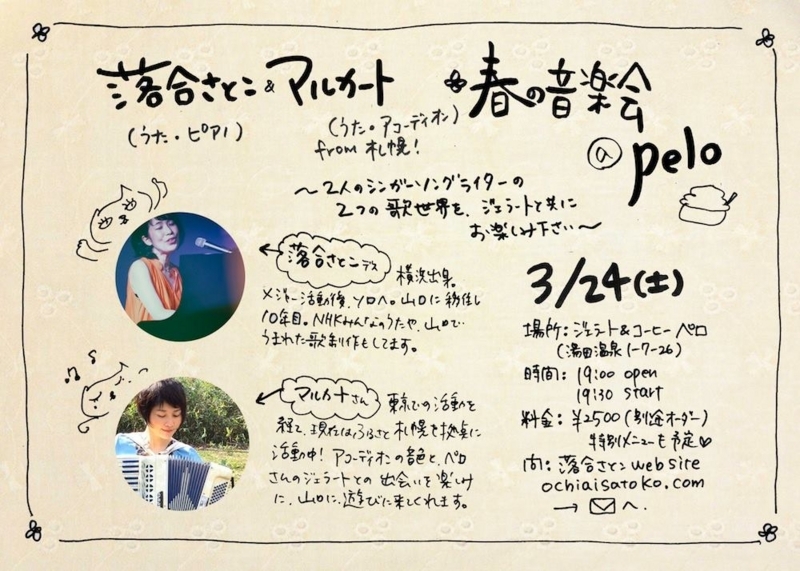 落合さとこ&マルカート 春の音楽会
(うた・ピアノ)
(うた・アコーディオン)
from 札幌!
@ pelo
〜2人のシンガーソングライターの
2つの歌世界を、ジェラートと共に
お楽しみ下さい〜
落合さとこデス
横浜出身。
メジャー活動後、ソロへ。山口に移住し
10年目。NHKみんなのうたや、山口で
うまれた歌制作もしてます。
マルカートさん
東京での活動を
経て、現在はふるさと札幌を拠点に
活動中!アコーディオンの音色と、ペロ
さんのジェラートとの出会いを楽しみ
に、山口に遊びに来てくれます。
3/24(土)
場所:ジェラート&コーヒー ペロ
(湯田温泉1-7-26)
時間:19:00 open
19:30 start
料金:¥2500(別途オーダー)
特別メニューも予定♡
問:落合さとこ website
ochiaisatoko.com
→ ✉ へ.